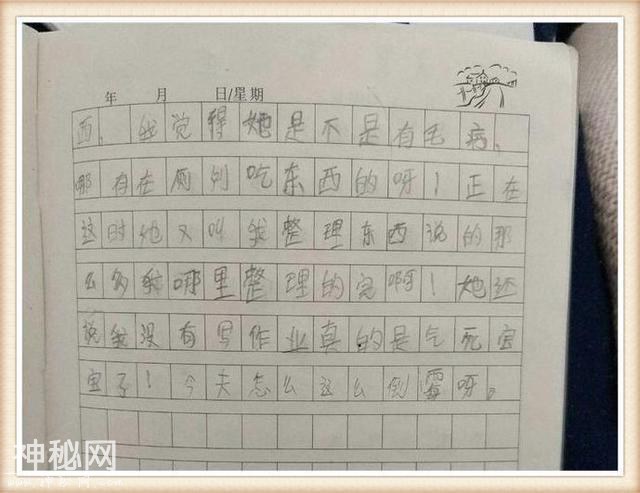 年 月 日/星期
西、我觉得她是不是有毛病、
哪有在厕列吃东西的呀！正在
这时她又叫我整理东西说的那
么多我哪里整理的完啊！她还
说我没有写作业真的是气死宝
宝了！今天怎么这么倒霉呀。
神秘网